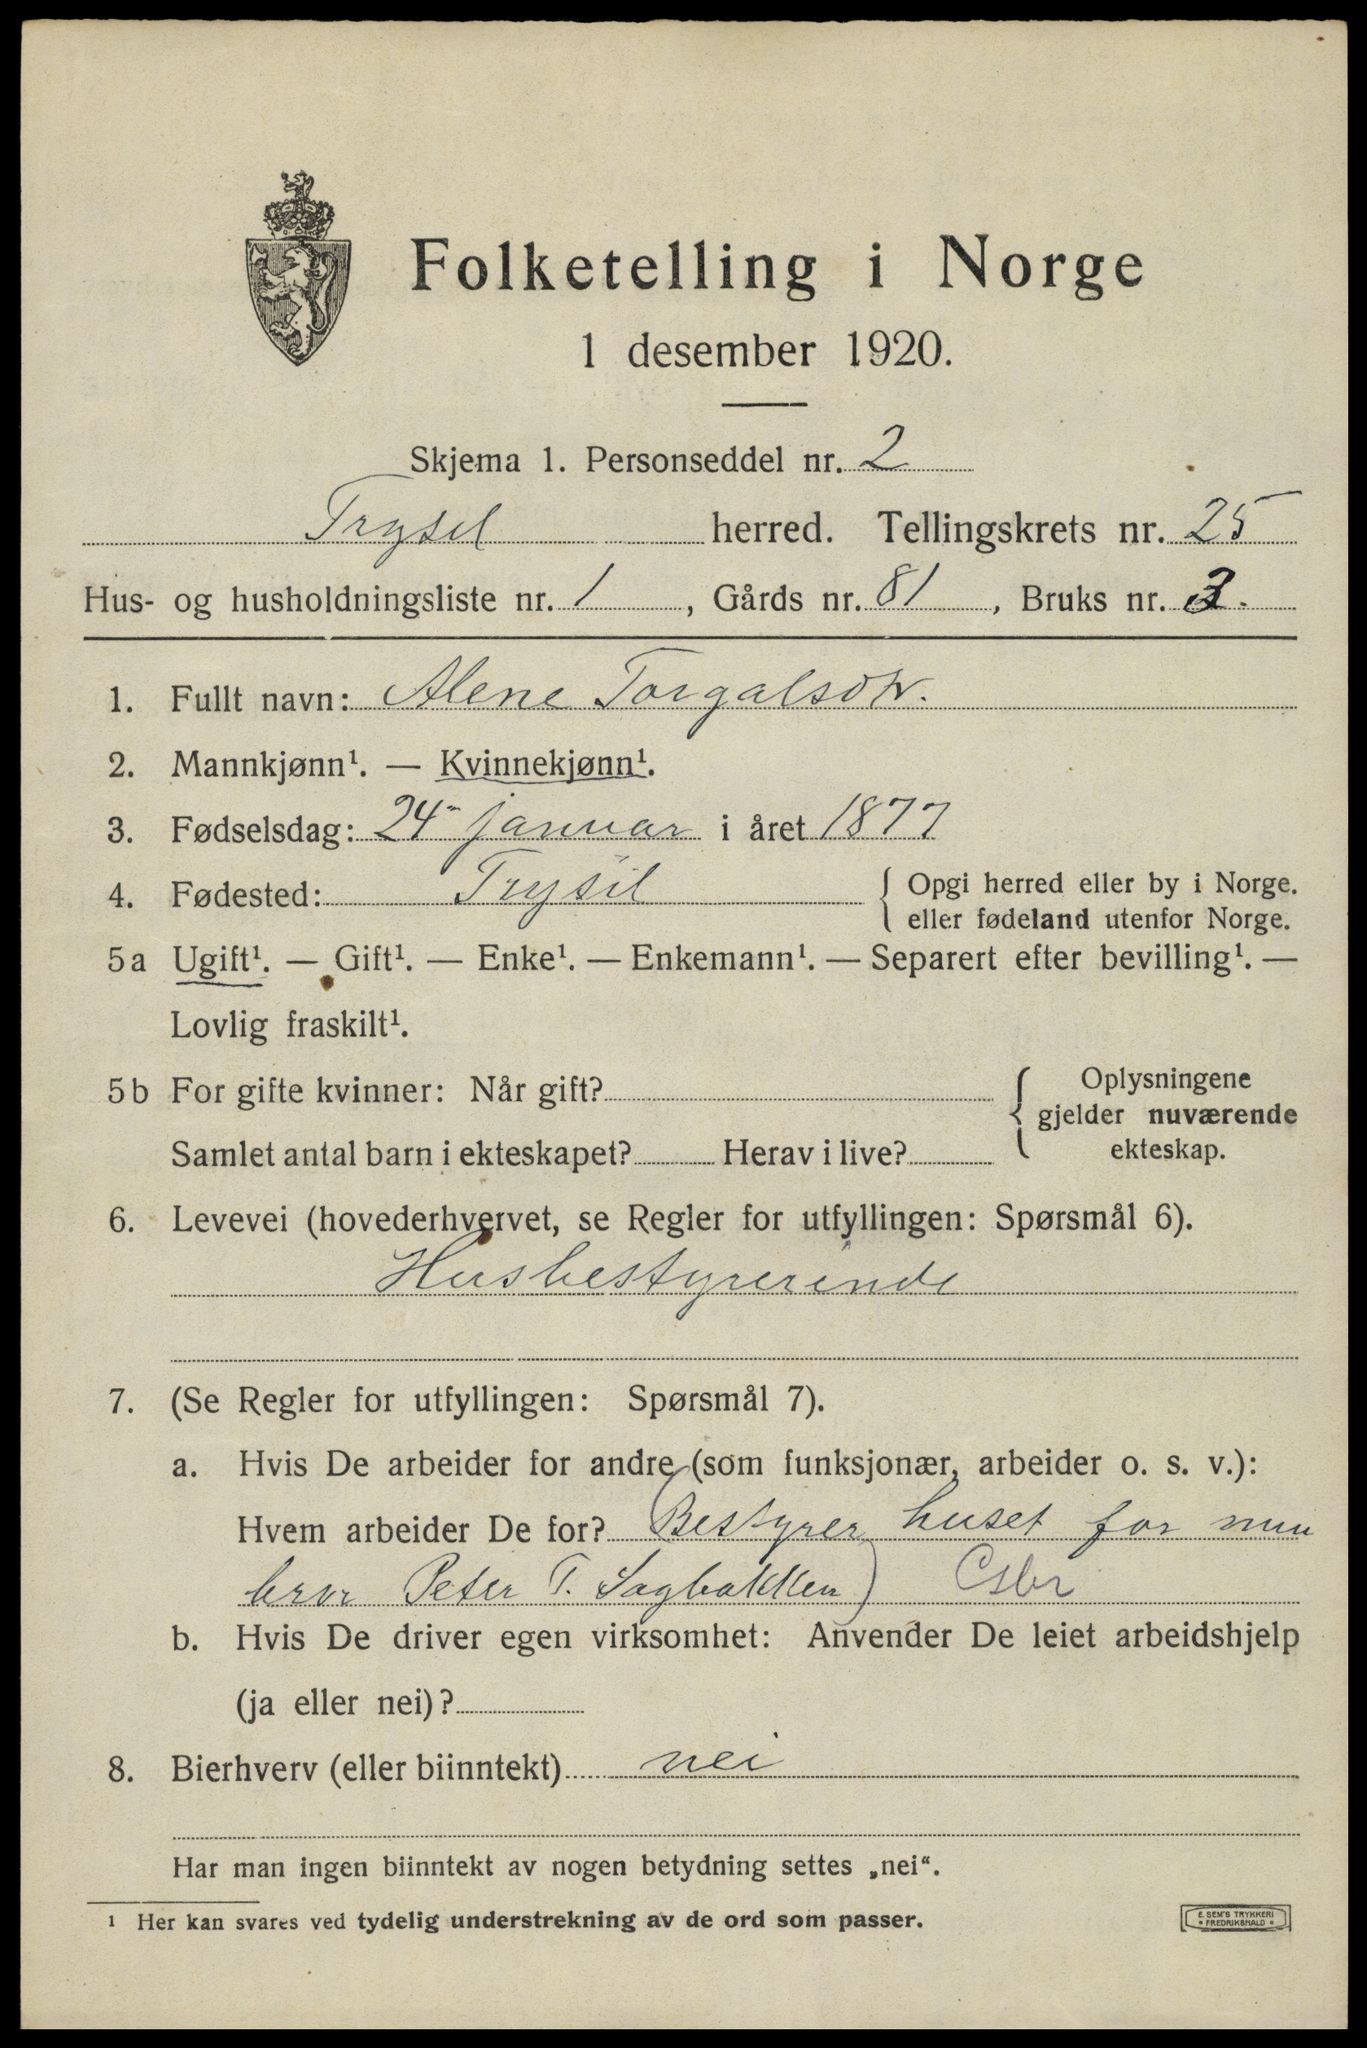 Folketelling i Norge
1 desember 1920.
Skjema 1. Personseddel nr. 2
Trysil herred. Tellingskrets nr. 25
Hus- og husholdningsliste nr. 1, Gårds nr. 81, Bruks nr. 3.
1. Fullt navn: Alene Torgalsdtr.
2. Mannkjønn¹. — Kvinnekjønn¹.
3. Fødselsdag: 24 januar i året 1877
4. Fødested: Trysil { Opgi herred eller by i Norge.
eller fødeland utenfor Norge.
5a Ugift¹. — Gift¹. — Enke¹. — Enkemann¹. — Separert efter bevilling¹. —
Lovlig fraskilt¹.
5b For gifte kvinner: Når gift? { Oplysningene
gjelder nuværende
Samlet antal barn i ekteskapet? Herav i live? ekteskap.
6. Levevei (hovederhvervet, se Regler for utfyllingen: Spørsmål 6).
Husbestyrerinde
7. (Se Regler for utfyllingen: Spørsmål 7).
a. Hvis De arbeider for andre (som funksjonær, arbeider o. s. v.):
Hvem arbeider De for? (Bestyrer huset for min
bror Peter T. Sagbakken)
b. Hvis De driver egen virksomhet: Anvender De leiet arbeidshjelp
(ja eller nei)?
8. Bierhverv (eller biinntekt) nei
Har man ingen biinntekt av nogen betydning settes „nei“.
¹ Her kan svares ved tydelig understrekning av de ord som passer.
E. SEM'S TRYKKERI
FREDRIKSHALD